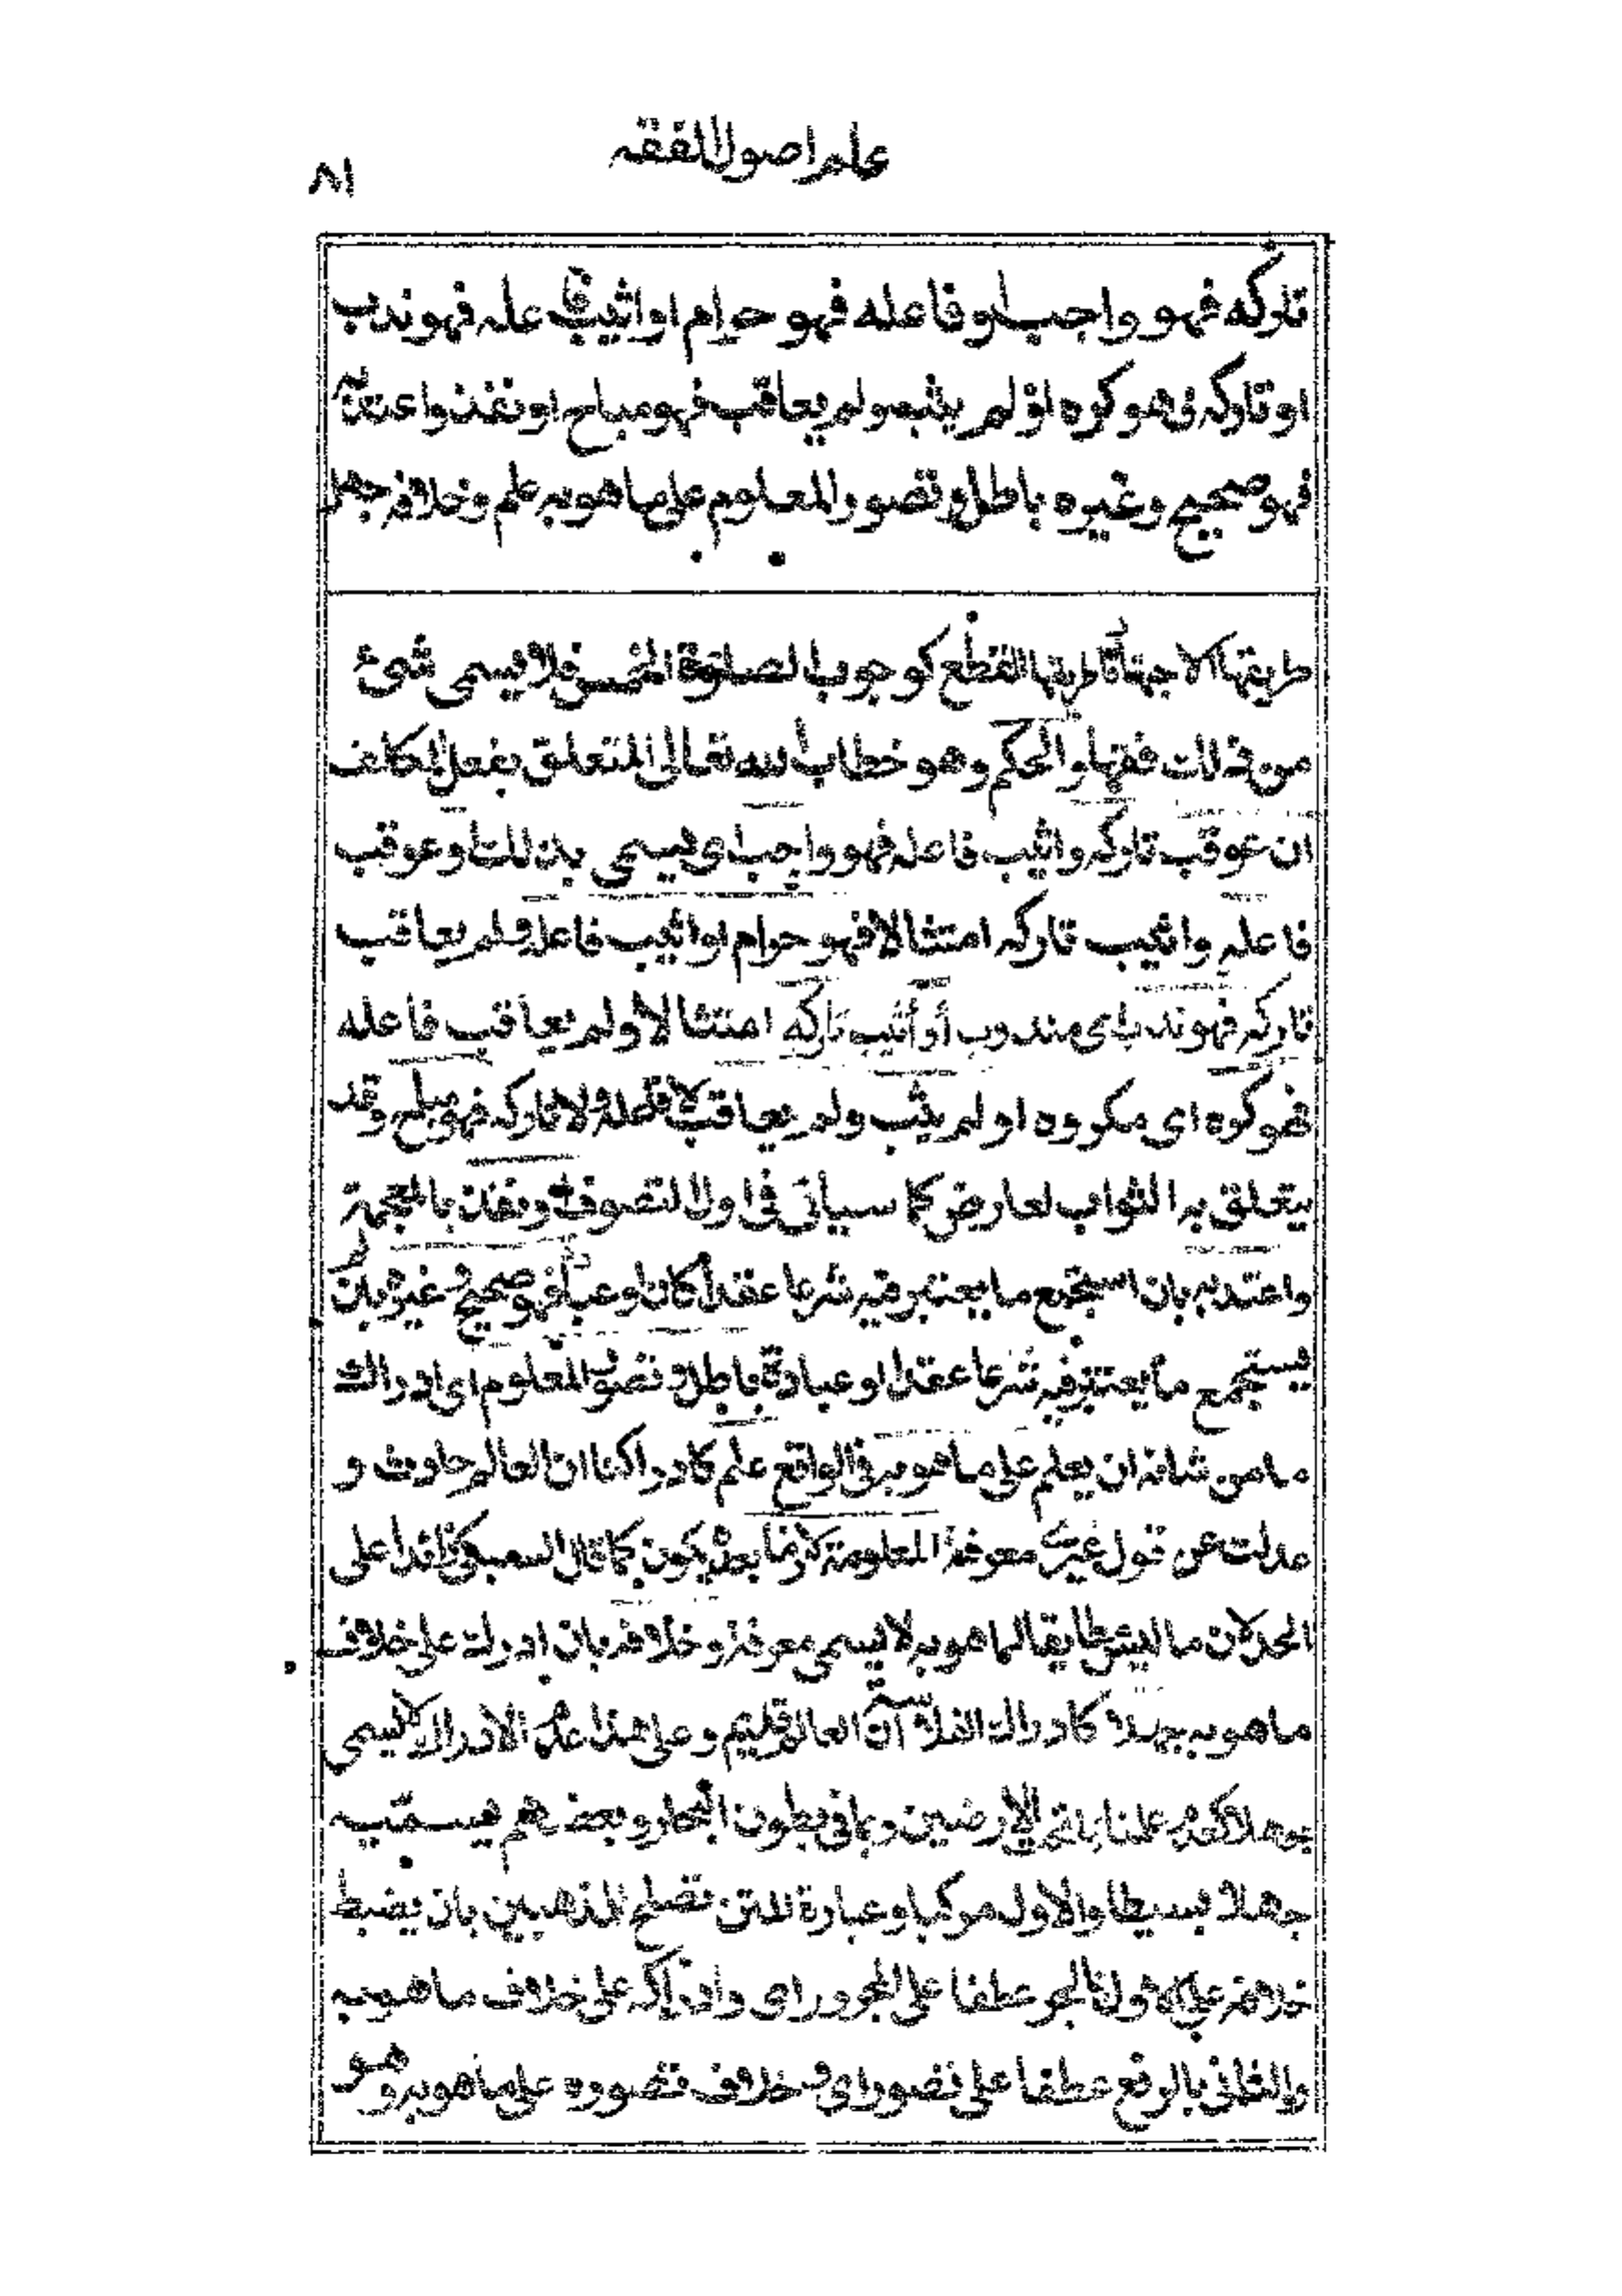 علم اصول الفقه
٨١
تاركه فهو واجب او فاعله فهو حرام او اثيب فاعله فهو ندب
او تاركه فهو كره او لم يثب ولم يعاقب فهو مباح او نفذ واعتد به
فهو صحيح وغيره باطل وتصور المعلوم على ما هو به علم وخلافه جهل
طريقها الاجتهاد طريقها القطع كوجوب الصلوة الخمس فلا يسمى شئ
من ذلك فقها والحكم وهو خطاب الله تعالى المتعلق بفعل المكلف
ان عوقب تاركه واثيب فاعله فهو واجب اى يسمى بذلك او عوقب
فاعله واثيب تاركه امتثالا فهو حرام او اثيب فاعله ولم يعاقب
تاركه فهو ندب اى مندوب أو أثيب تاركه امتثالا ولم يعاقب فاعله
فهو كره اى مكروه او لم يثب ولم يعاقب لا فاعله ولا تاركه فهو مباح وقد
يتعلق به الثواب لعارض كما سيأتى فى اول التصوف او نفذ بالمعجمة
واعتد به بان استجمع ما يعتبر فيه شرعا عقدا كان او عبادة فهو صحيح وغيره بان لم
يستجمع ما يعتبر فيه شرعا عقدا او عبادة باطل وتصور المعلوم اى ادراك
ما من شانه ان يعلم على ما هو به فى الواقع علم كادراكنا ان العالم حادث و
عدلت عن قول غيرى معرفة المعلوم لان ما بعده يكون كما قال السبكى زائدا على
الحد لان ما ليس مطابقا لما هو به لا يسمى معرفة وخلافه بان ادرك على خلاف
ما هو به جهل كادراك الفلاسفة أن العالم قديم وعلى هذا عدم الادراك لا يسمى
جهلا كعدم علمنا بما تحت الارضين وبما فى بطون البحار وبعضهم يسميه
جهلا بسيطا والاول مركبا وعبارة المتن تصلح للمذهبين بان يضبط
خلافه على الاول بالجر عطفا على المجرور اى وادراكه على خلاف ما هو به
والثانى بالرفع عطفا على تصور اى وخلاف تصوره على ما هو به وهو